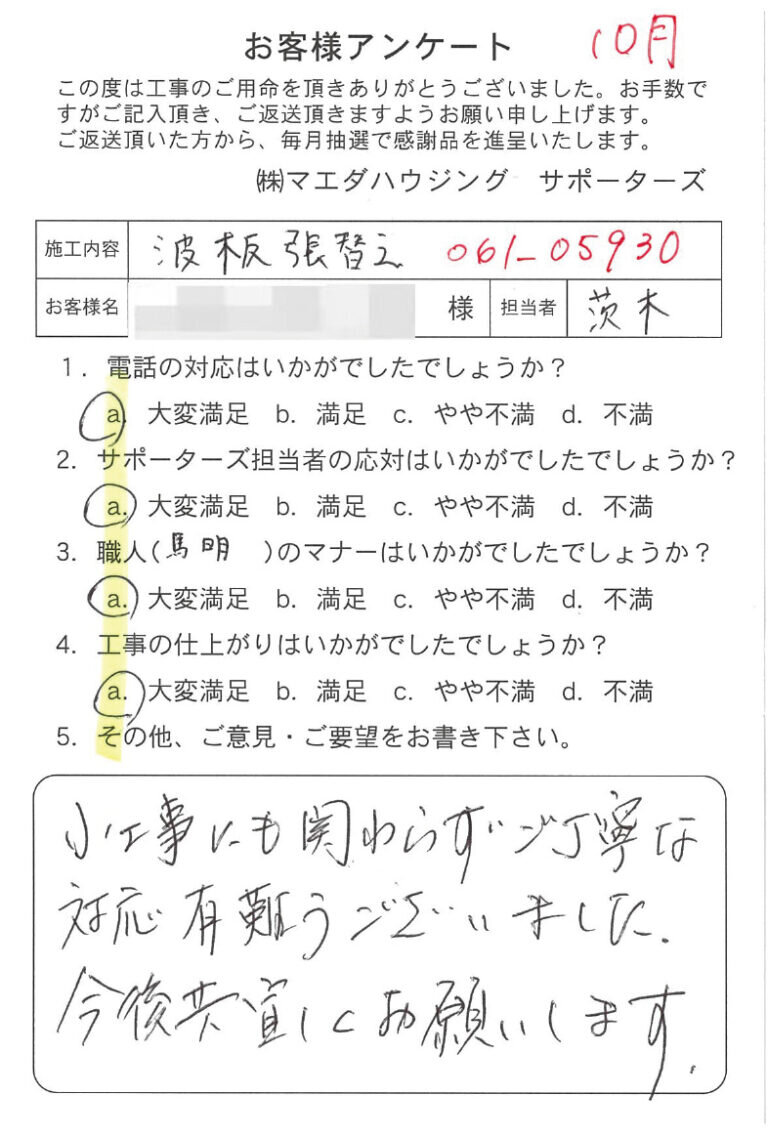 お客様アンケート 10月
この度は工事のご用命を頂きありがとうございました。お手数で
すがご記入頂き、ご返送頂きますようお願い申し上げます。
ご返送頂いた方から、毎月抽選で感謝品を進呈いたします。
㈱マエダハウジング サポーターズ
施工内容 波板張替え 061-05930
お客様名 様 担当者 茨木
1. 電話の対応はいかがでしたでしょうか？
a. 大変満足 b. 満足 c. やや不満 d. 不満
2. サポーターズ担当者の応対はいかがでしたでしょうか？
a. 大変満足 b. 満足 c. やや不満 d. 不満
3. 職人(馬明 )のマナーはいかがでしたでしょうか？
a. 大変満足 b. 満足 c. やや不満 d. 不満
4. 工事の仕上がりはいかがでしたでしょうか？
a. 大変満足 b. 満足 c. やや不満 d. 不満
5. その他、ご意見・ご要望をお書き下さい。
小工事にも関わらずご丁寧な
対応有難うございました.
今後共宜しくお願いします.